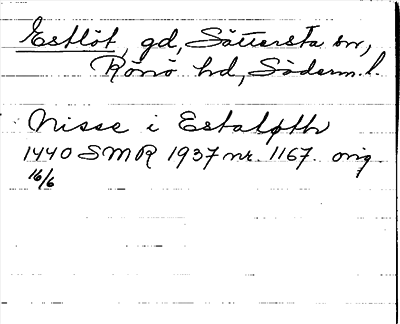 Estlöt, gd, Sättersta sn,
Rönö hd, Söderm. l.
Nisse i Estaløth
1440 SMR 1937 nr. 1167. orig
16/6